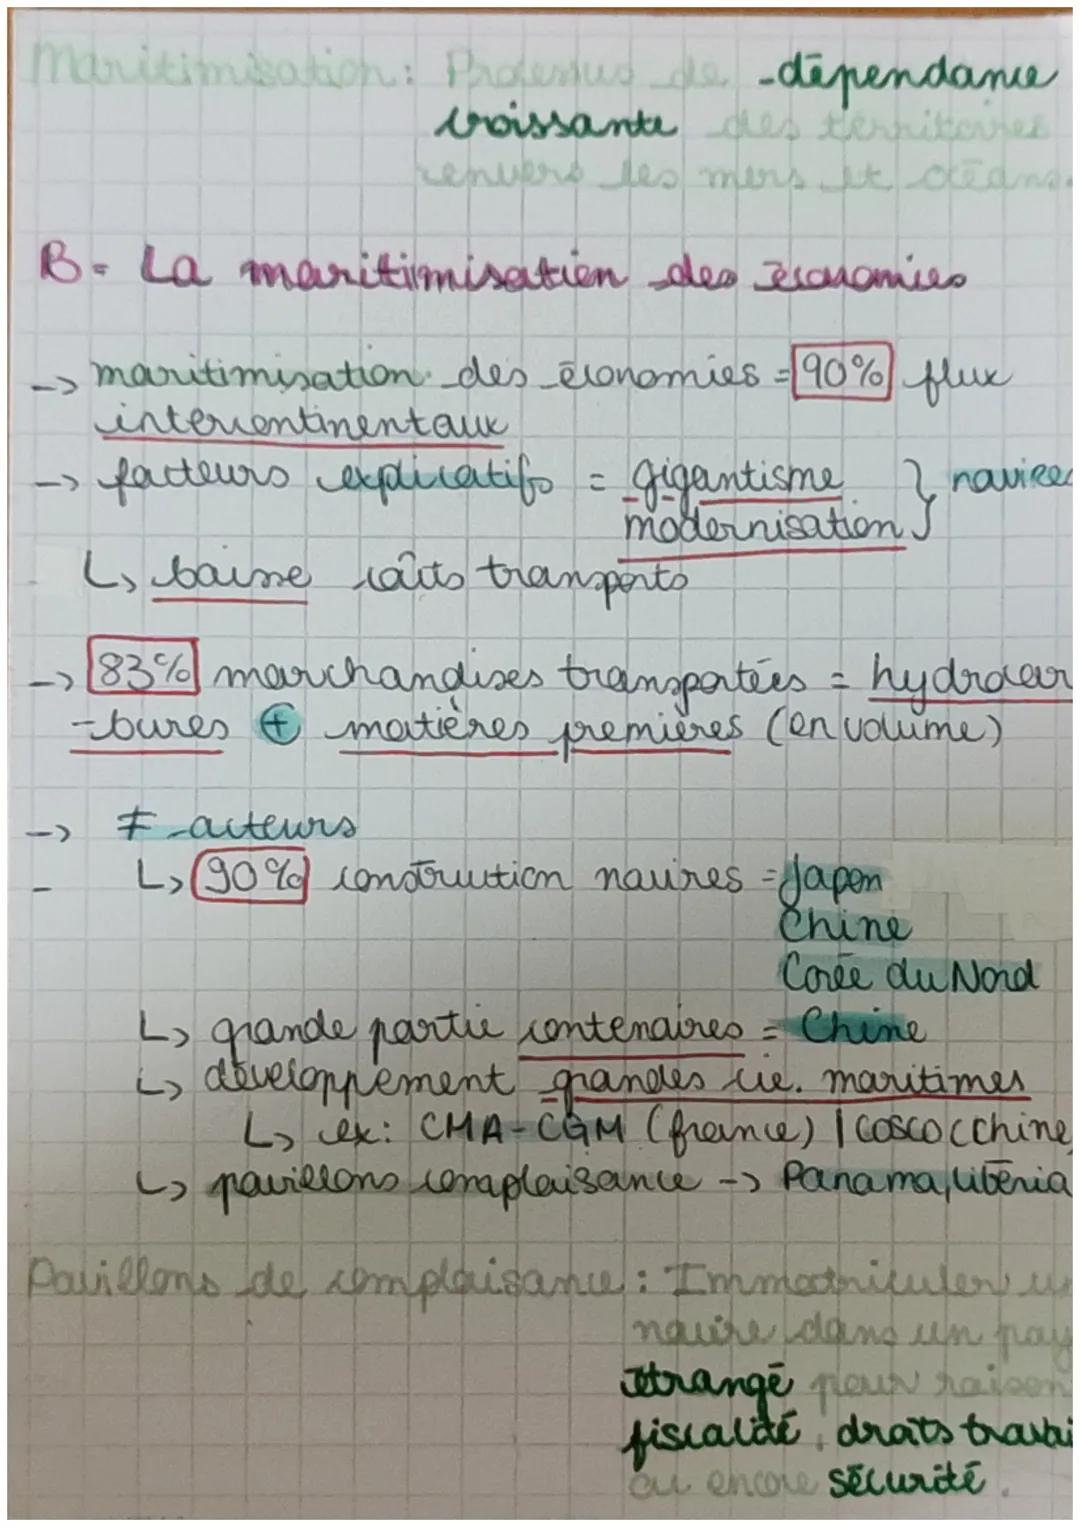 Maritimisation : Processus de dépendance
croissante des territoires
envers les mers et océans.
B- La maritimisation des économies
-> maritimisation des économies = 90% flux
intercontinentaux
-> facteurs explicatifs = gigantisme } navires
modernisation
↳ baisse coûts transports
-> 83% marchandises transportées = hydrocar
-bures + matières premières (en volume)
-> ≠ acteurs
↳ 90% construction navires = Japon
Chine
Corée du Nord
↳ grande partie contenaires = Chine
↳ développement grandes cie. maritimes
↳ ex: CMA-CGM (france) | COSCO (Chine
↳ pavillons complaisance -> Panama, Libéria
Pavillons de complaisance : Immatriculer u
navire dans un pay
étrangé pour raison
fiscalité, droits travai
ou encore sécurité.